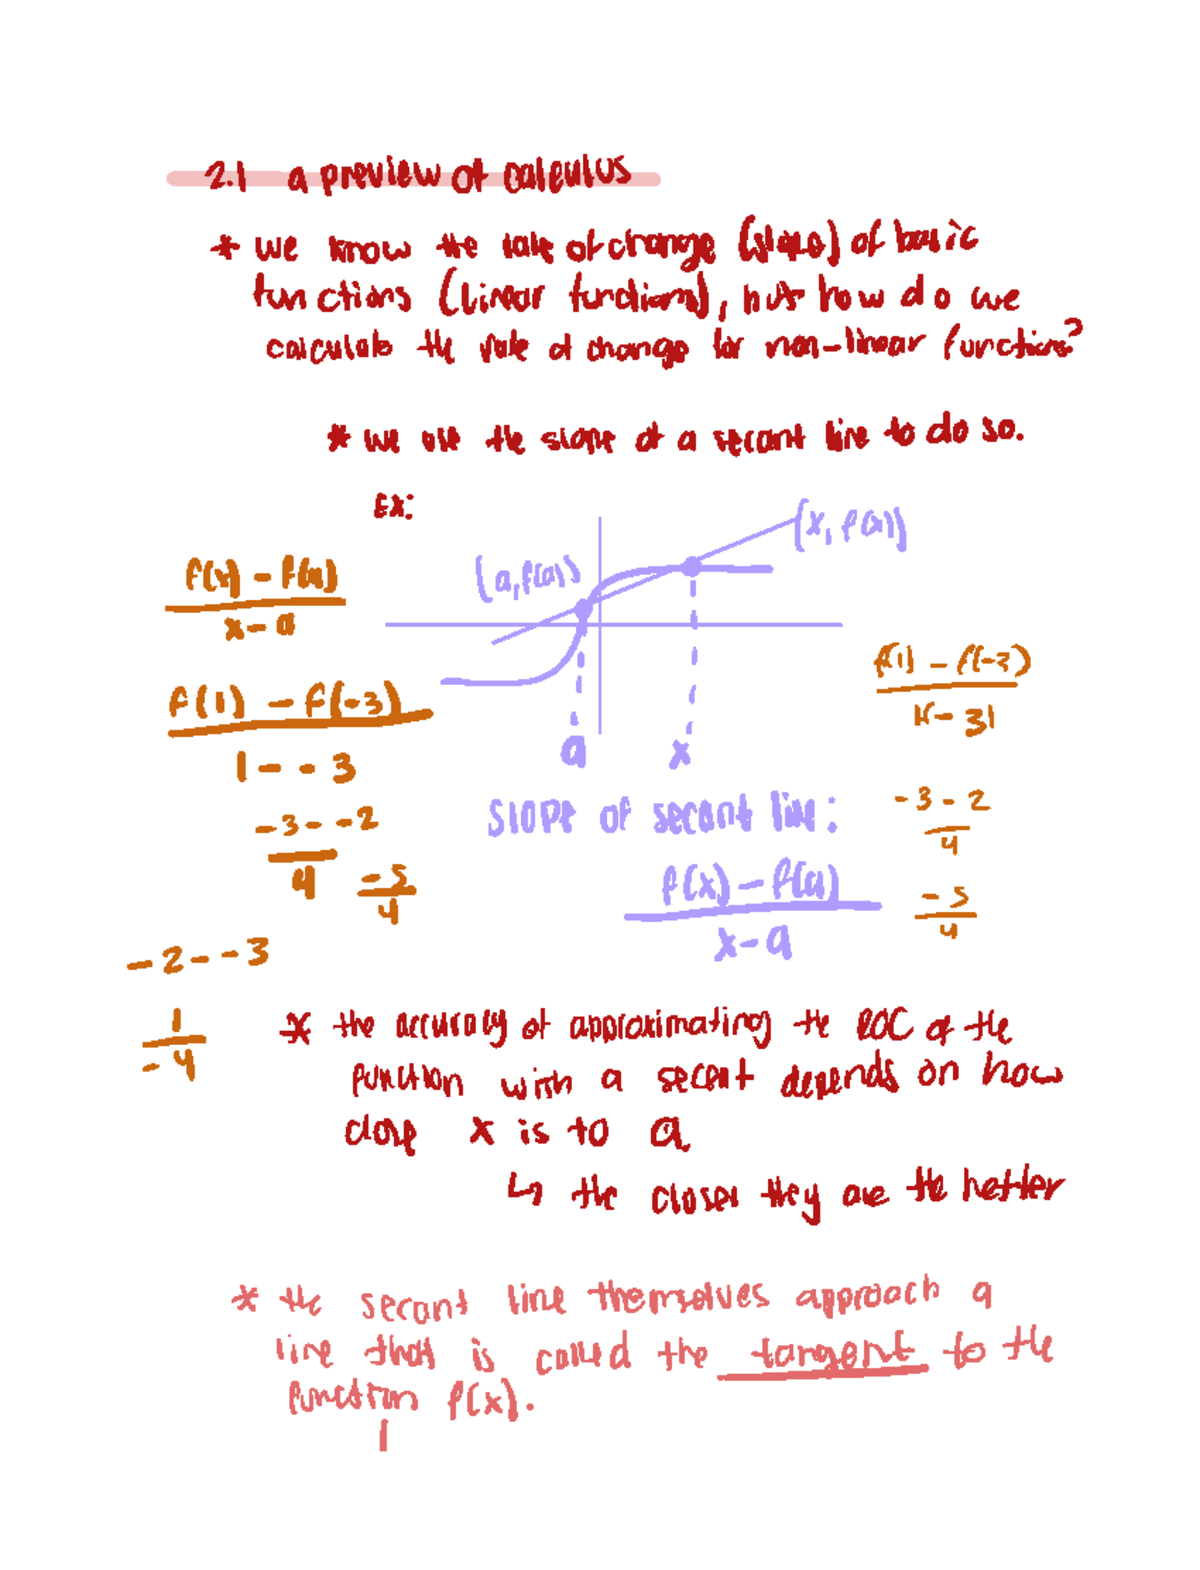 2.1 a preview of calculus
* we know the rate of change (slope) of basic
functions (linear functions), but how do we
calculate the rate of change for non-linear functions?
* we use the slope of a secant line to do so.
Ex:
(x, f(x))
(a, f(a))
f(x) - f(a)
x - a
f(1) - f(-3)
1 - - 3
-3 - -2
4
-5
4
-2 - -3
1
-4
a
x
f(1) - f(-3)
1 - 3
-3 - 2
4
-5
4
slope of secant line:
f(x) - f(a)
x - a
* the accuracy of approximating the ROC of the
function with a secant depends on how
close x is to a.
↳ the closer they are the better
* the secant line themselves approach a
line that is called the tangent to the
function f(x).